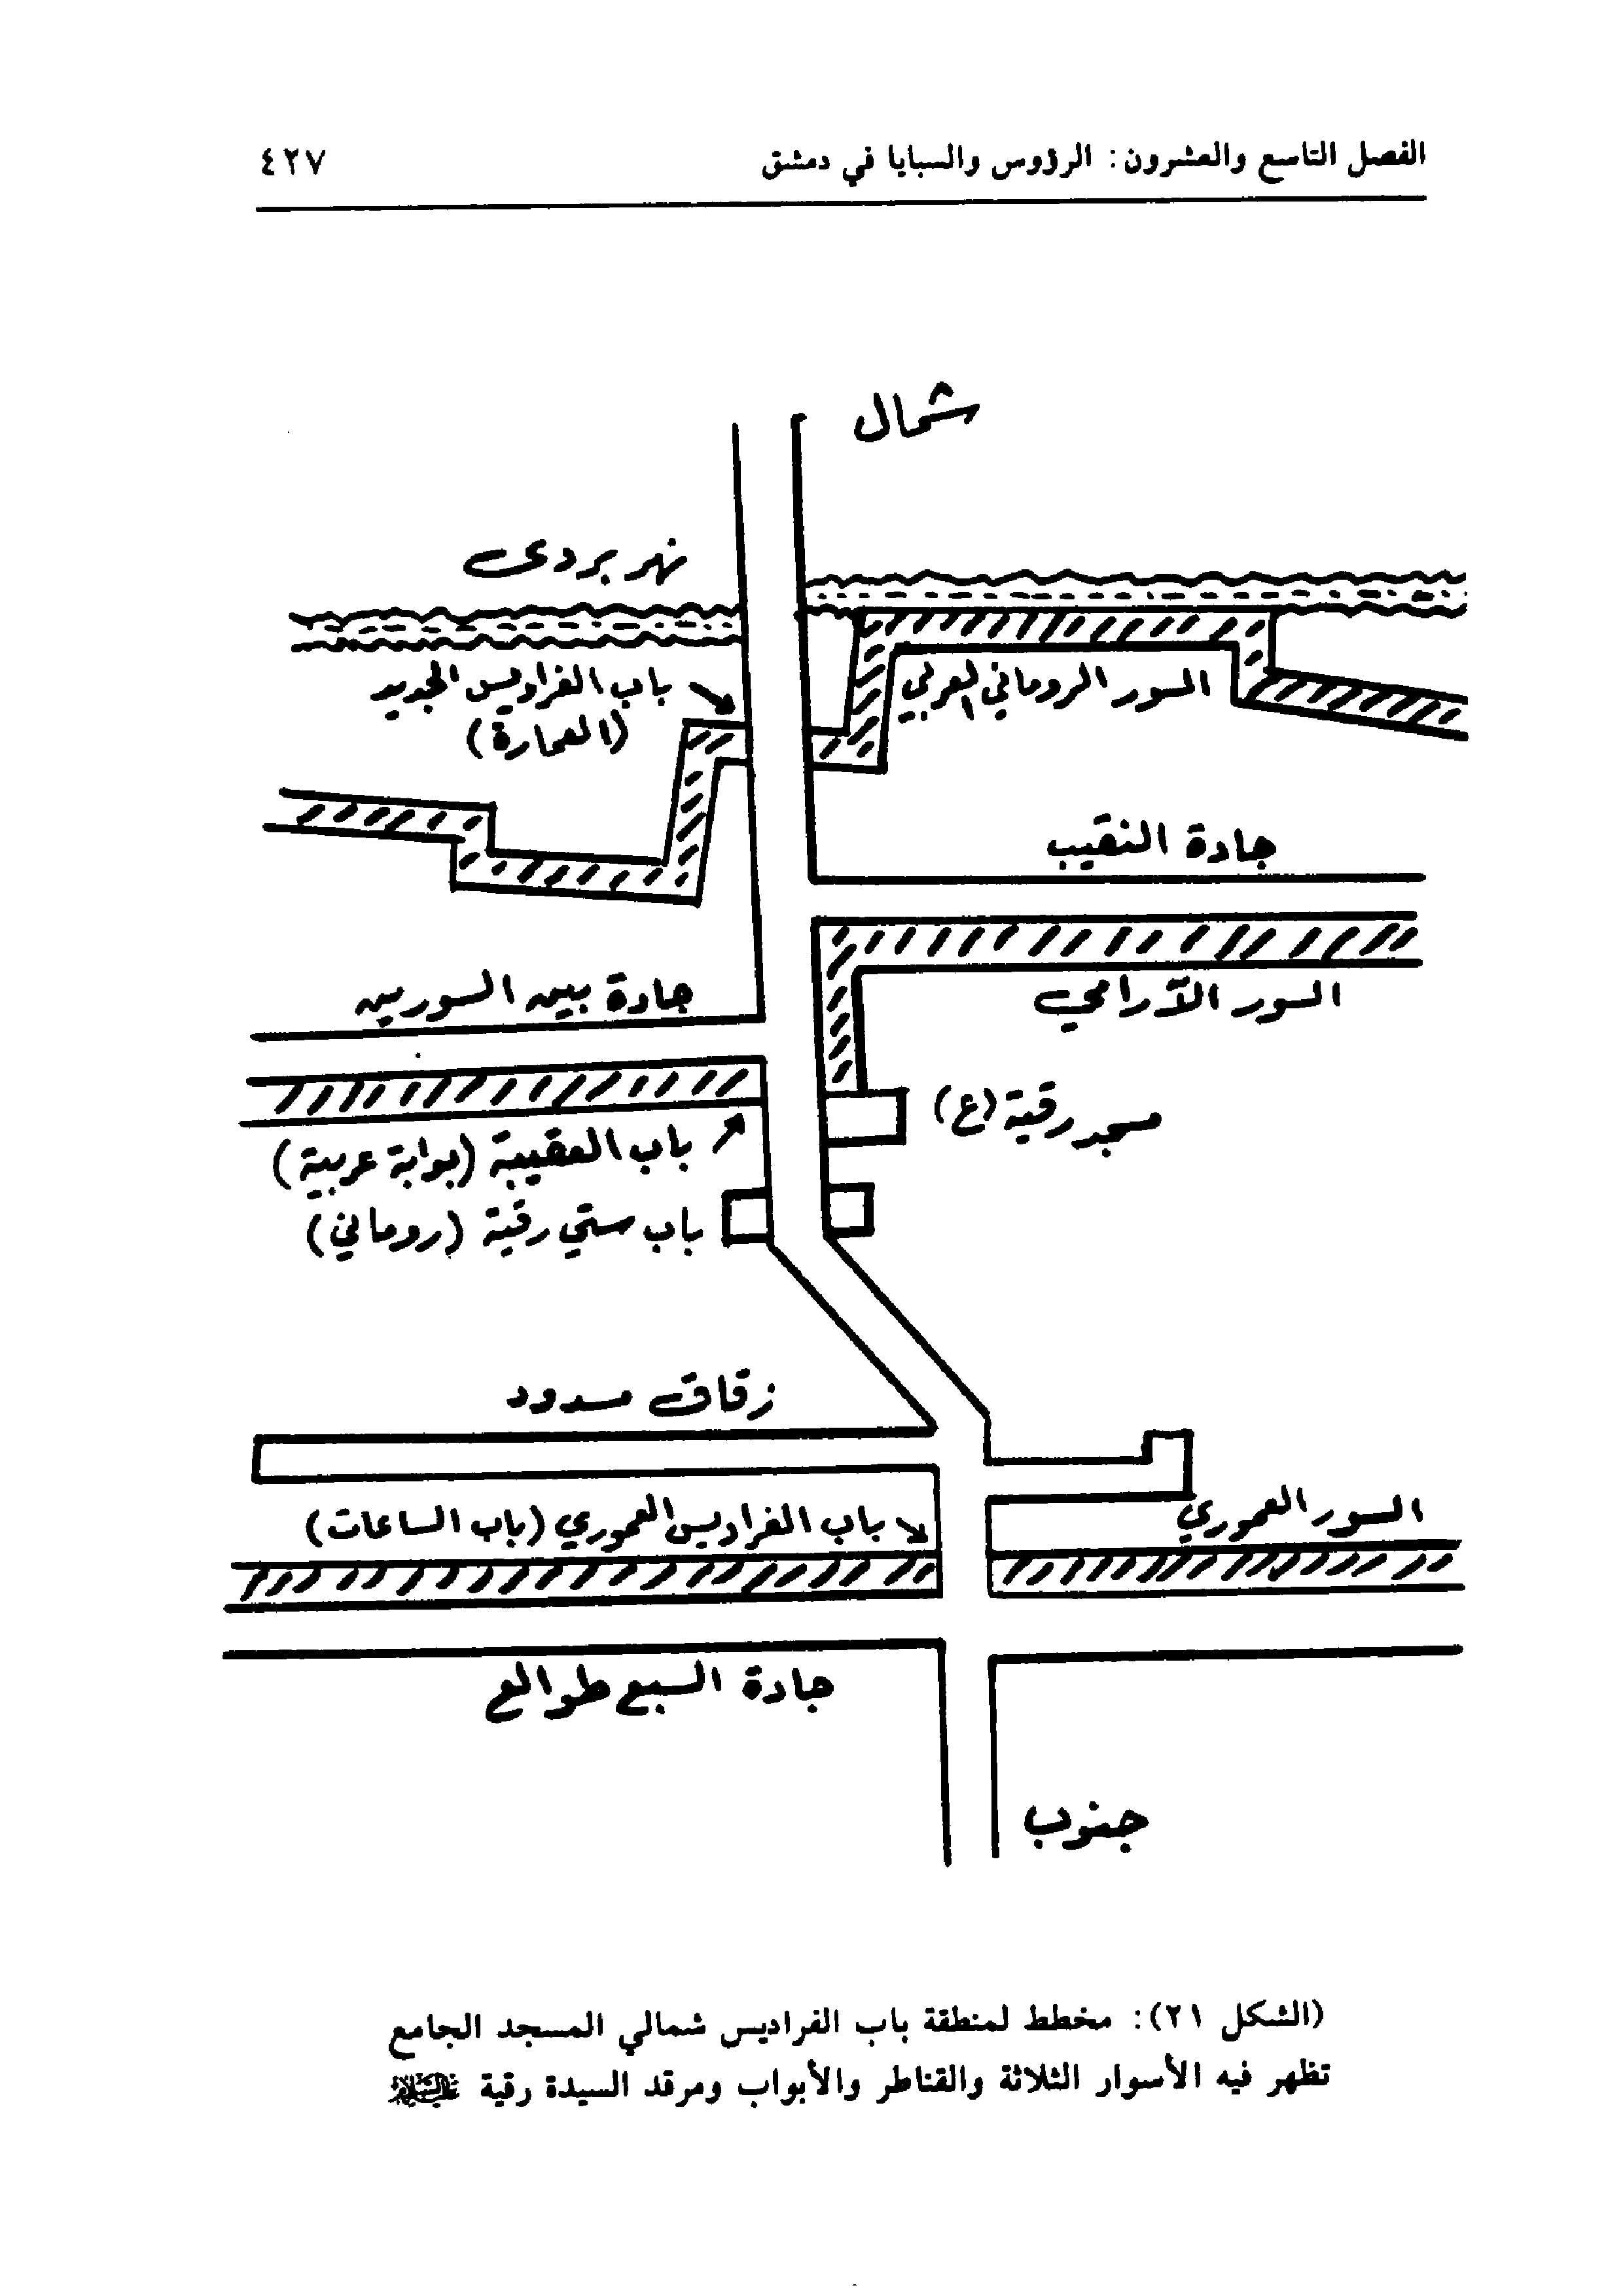 الفصل التاسع والعشرون: الرؤوس والسبايا في دمشق ٤٢٧
شمال
نهر بردى
باب الفراديس الجديد
(العمارة)
السور الروماني العربي
جادة النقيب
جادة بين السورين
السور الآرامي
مسجد رقية (ع)
باب العقيبة (بوابة عربية)
باب ستي رقية (روماني)
زقاق مسدود
باب الفراديس العموري (باب الساعات)
السور العموري
جادة السبع طوالع
جنوب
(الشكل ٢١): مخطط لمنطقة باب الفراديس شمالي المسجد الجامع
تظهر فيه الأسوار الثلاثة والقناطر والأبواب ومرقد السيدة رقية